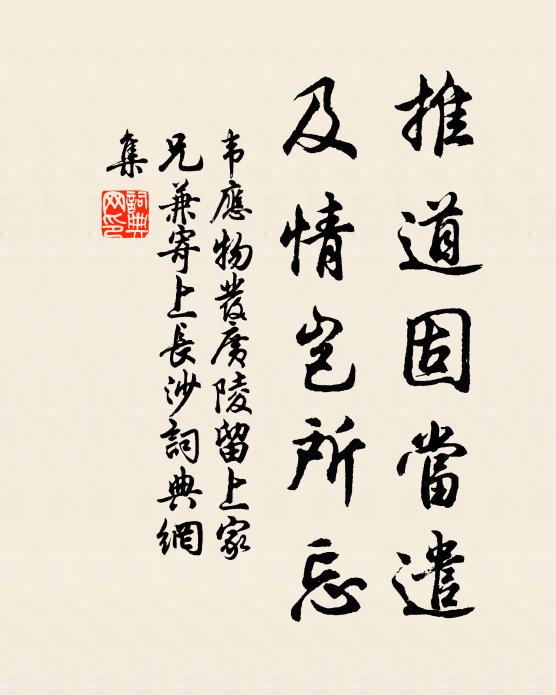 推道固當遣
及情豈所忘
韦應物發廣陵留上家
兄兼寄上長沙詞典網
集
詞典
网印